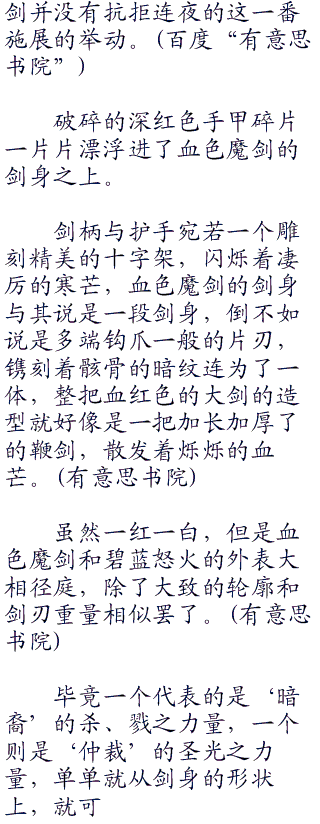 剑并没有抗拒连夜的这一番
施展的举动。(百度“有意思
书院”)
破碎的深红色手甲碎片
一片片漂浮进了血色魔剑的
剑身之上。
剑柄与护手宛若一个雕
刻精美的十字架，闪烁着凄
厉的寒芒，血色魔剑的剑身
与其说是一段剑身，倒不如
说是多端钩爪一般的片刃，
镌刻着骸骨的暗纹连为了一
体，整把血红色的大剑的造
型就好像是一把加长加厚了
的鞭剑，散发着烁烁的血
芒。(有意思书院)
虽然一红一白，但是血
色魔剑和碧蓝怒火的外表大
相径庭，除了大致的轮廓和
剑刃重量相似罢了。(有意思
书院)
毕竟一个代表的是‘暗
裔’的杀、戮之力量，一个
则是‘仲裁’的圣光之力
量，单单就从剑身的形状
上，就可